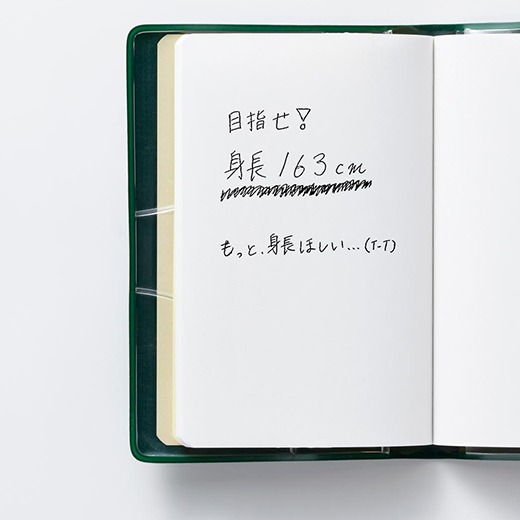 目指せ!
身長163cm
もっと、身長ほしい...(T-T)